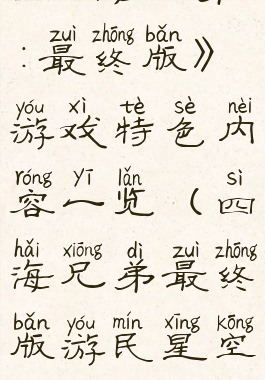 zuì zhōng bǎn
：最终版》
yóu xì tè sè nèi
游戏特色内
róng yī lǎn sì
容一览（四
hǎi xiōng dì zuì zhōng
海兄弟最终
bǎn yóu mín xīng kōng
版游民星空